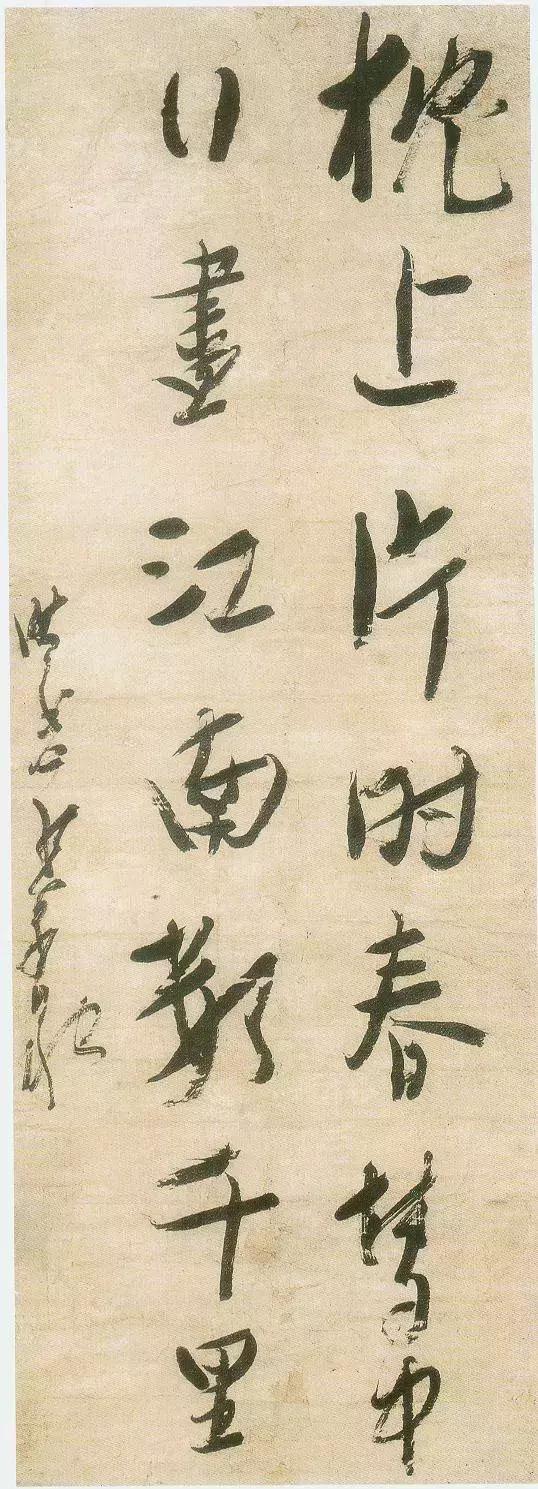 枕上片时春夢中
行盡江南數千里